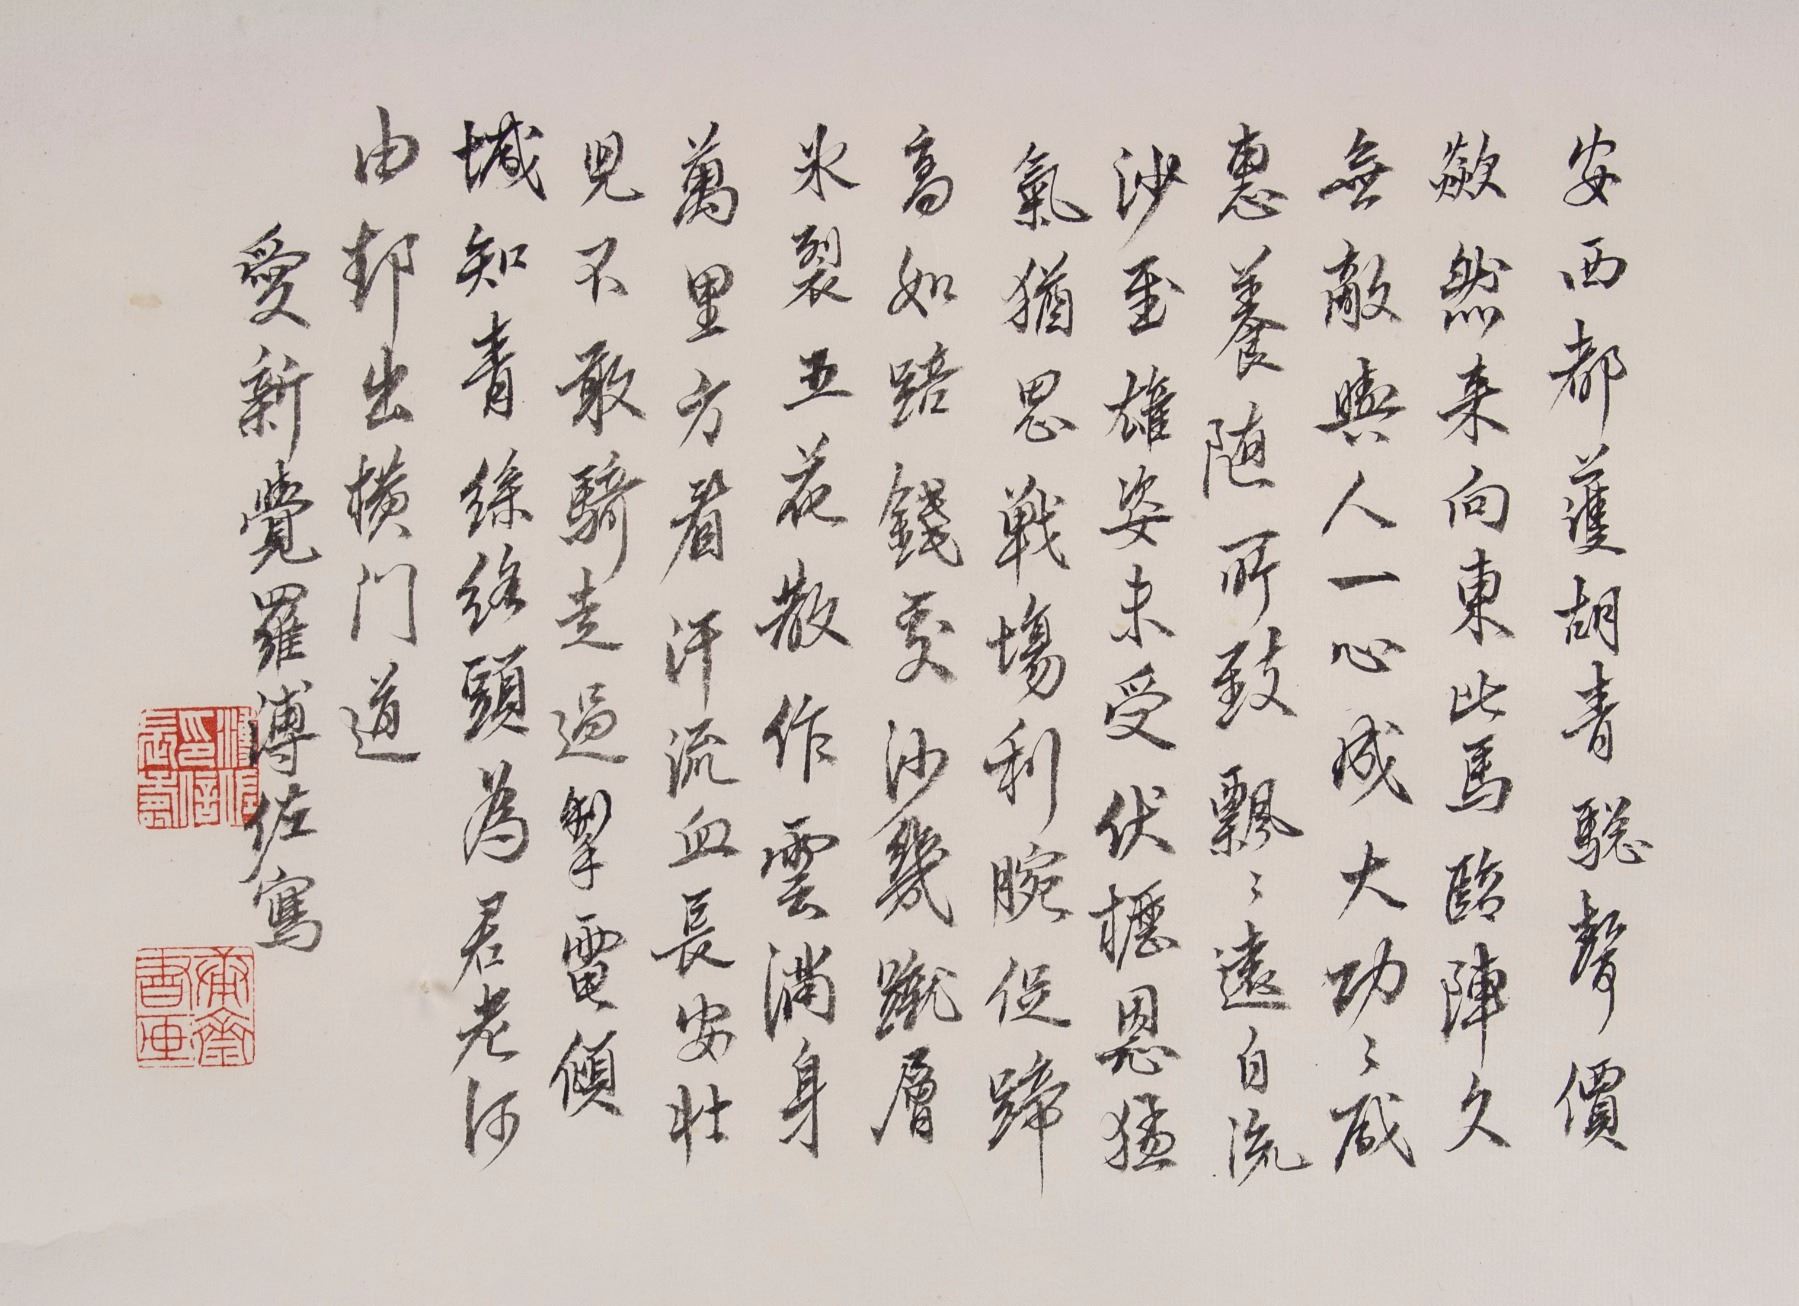 安西都護胡青驄聲價
歘然来向東此馬臨陣久
無敵與人一心成大功〻成
惠養随所致飄〻遠自流
沙至雄姿未受伏櫪恩猛
氣猶思戰場利腕促蹄
高如踣鐵交河幾蹴層
氷裂五花散作雲滿身
萬里方看汗流血長安壮
児不敢騎走過掣電傾
城知青絲絡頭為君老何
由却出横門道
愛新覺羅溥佐寫
溥佐印信長壽
庸齋書画